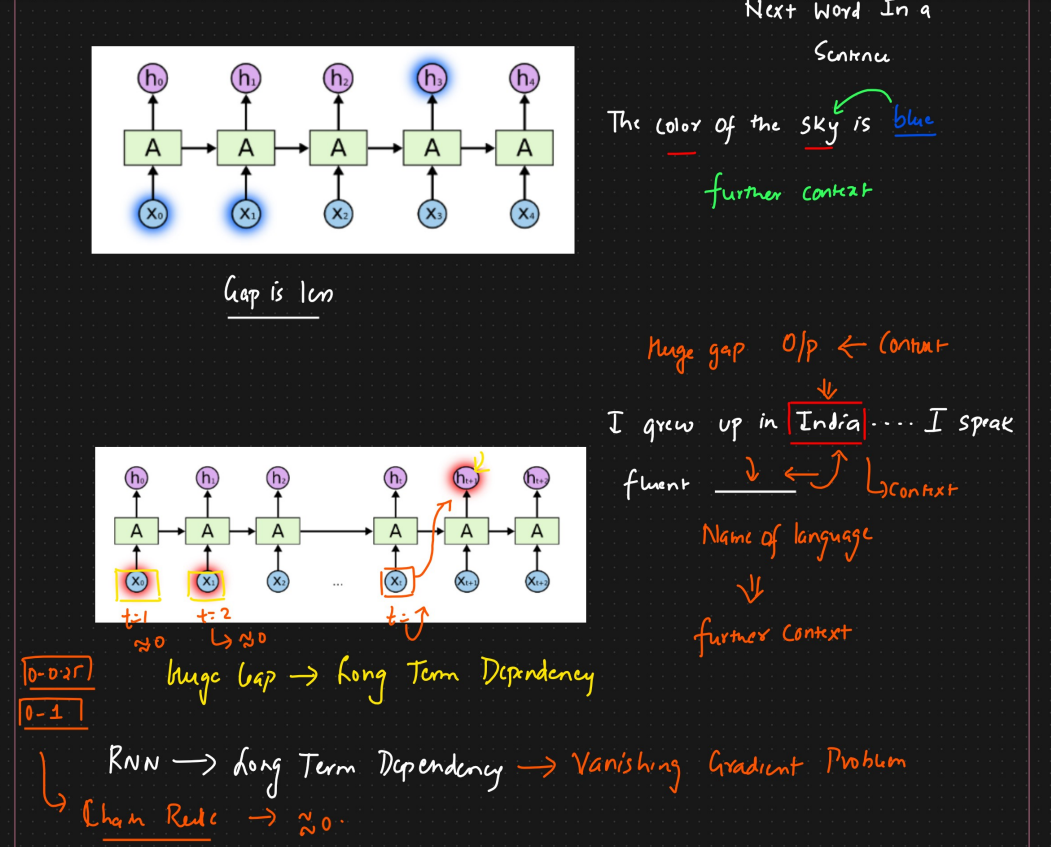 Next Word In a
Sentence
h₀ h₁ h₂ h₃ h₄
A A A A A
X₀ X₁ X₂ X₃ X₄
The color of the sky is blue
further context
Gap is less
Huge gap O/p ← Context
I grew up in India .... I speak
fluent ______
Context
Name of language
further Context
h₀ h₁ h₂ hₜ hₜ₊₁ hₜ₊₂
A A A A A A
X₀ X₁ X₂ ... Xₜ Xₜ₊₁ Xₜ₊₂
t=1 t=2 t=
≈0 ↳ ≈0
0-0.25
0-1
Huge Gap → Long Term Dependency
RNN → Long Term Dependency → Vanishing Gradient Problem
Chain Rule → ≈0.